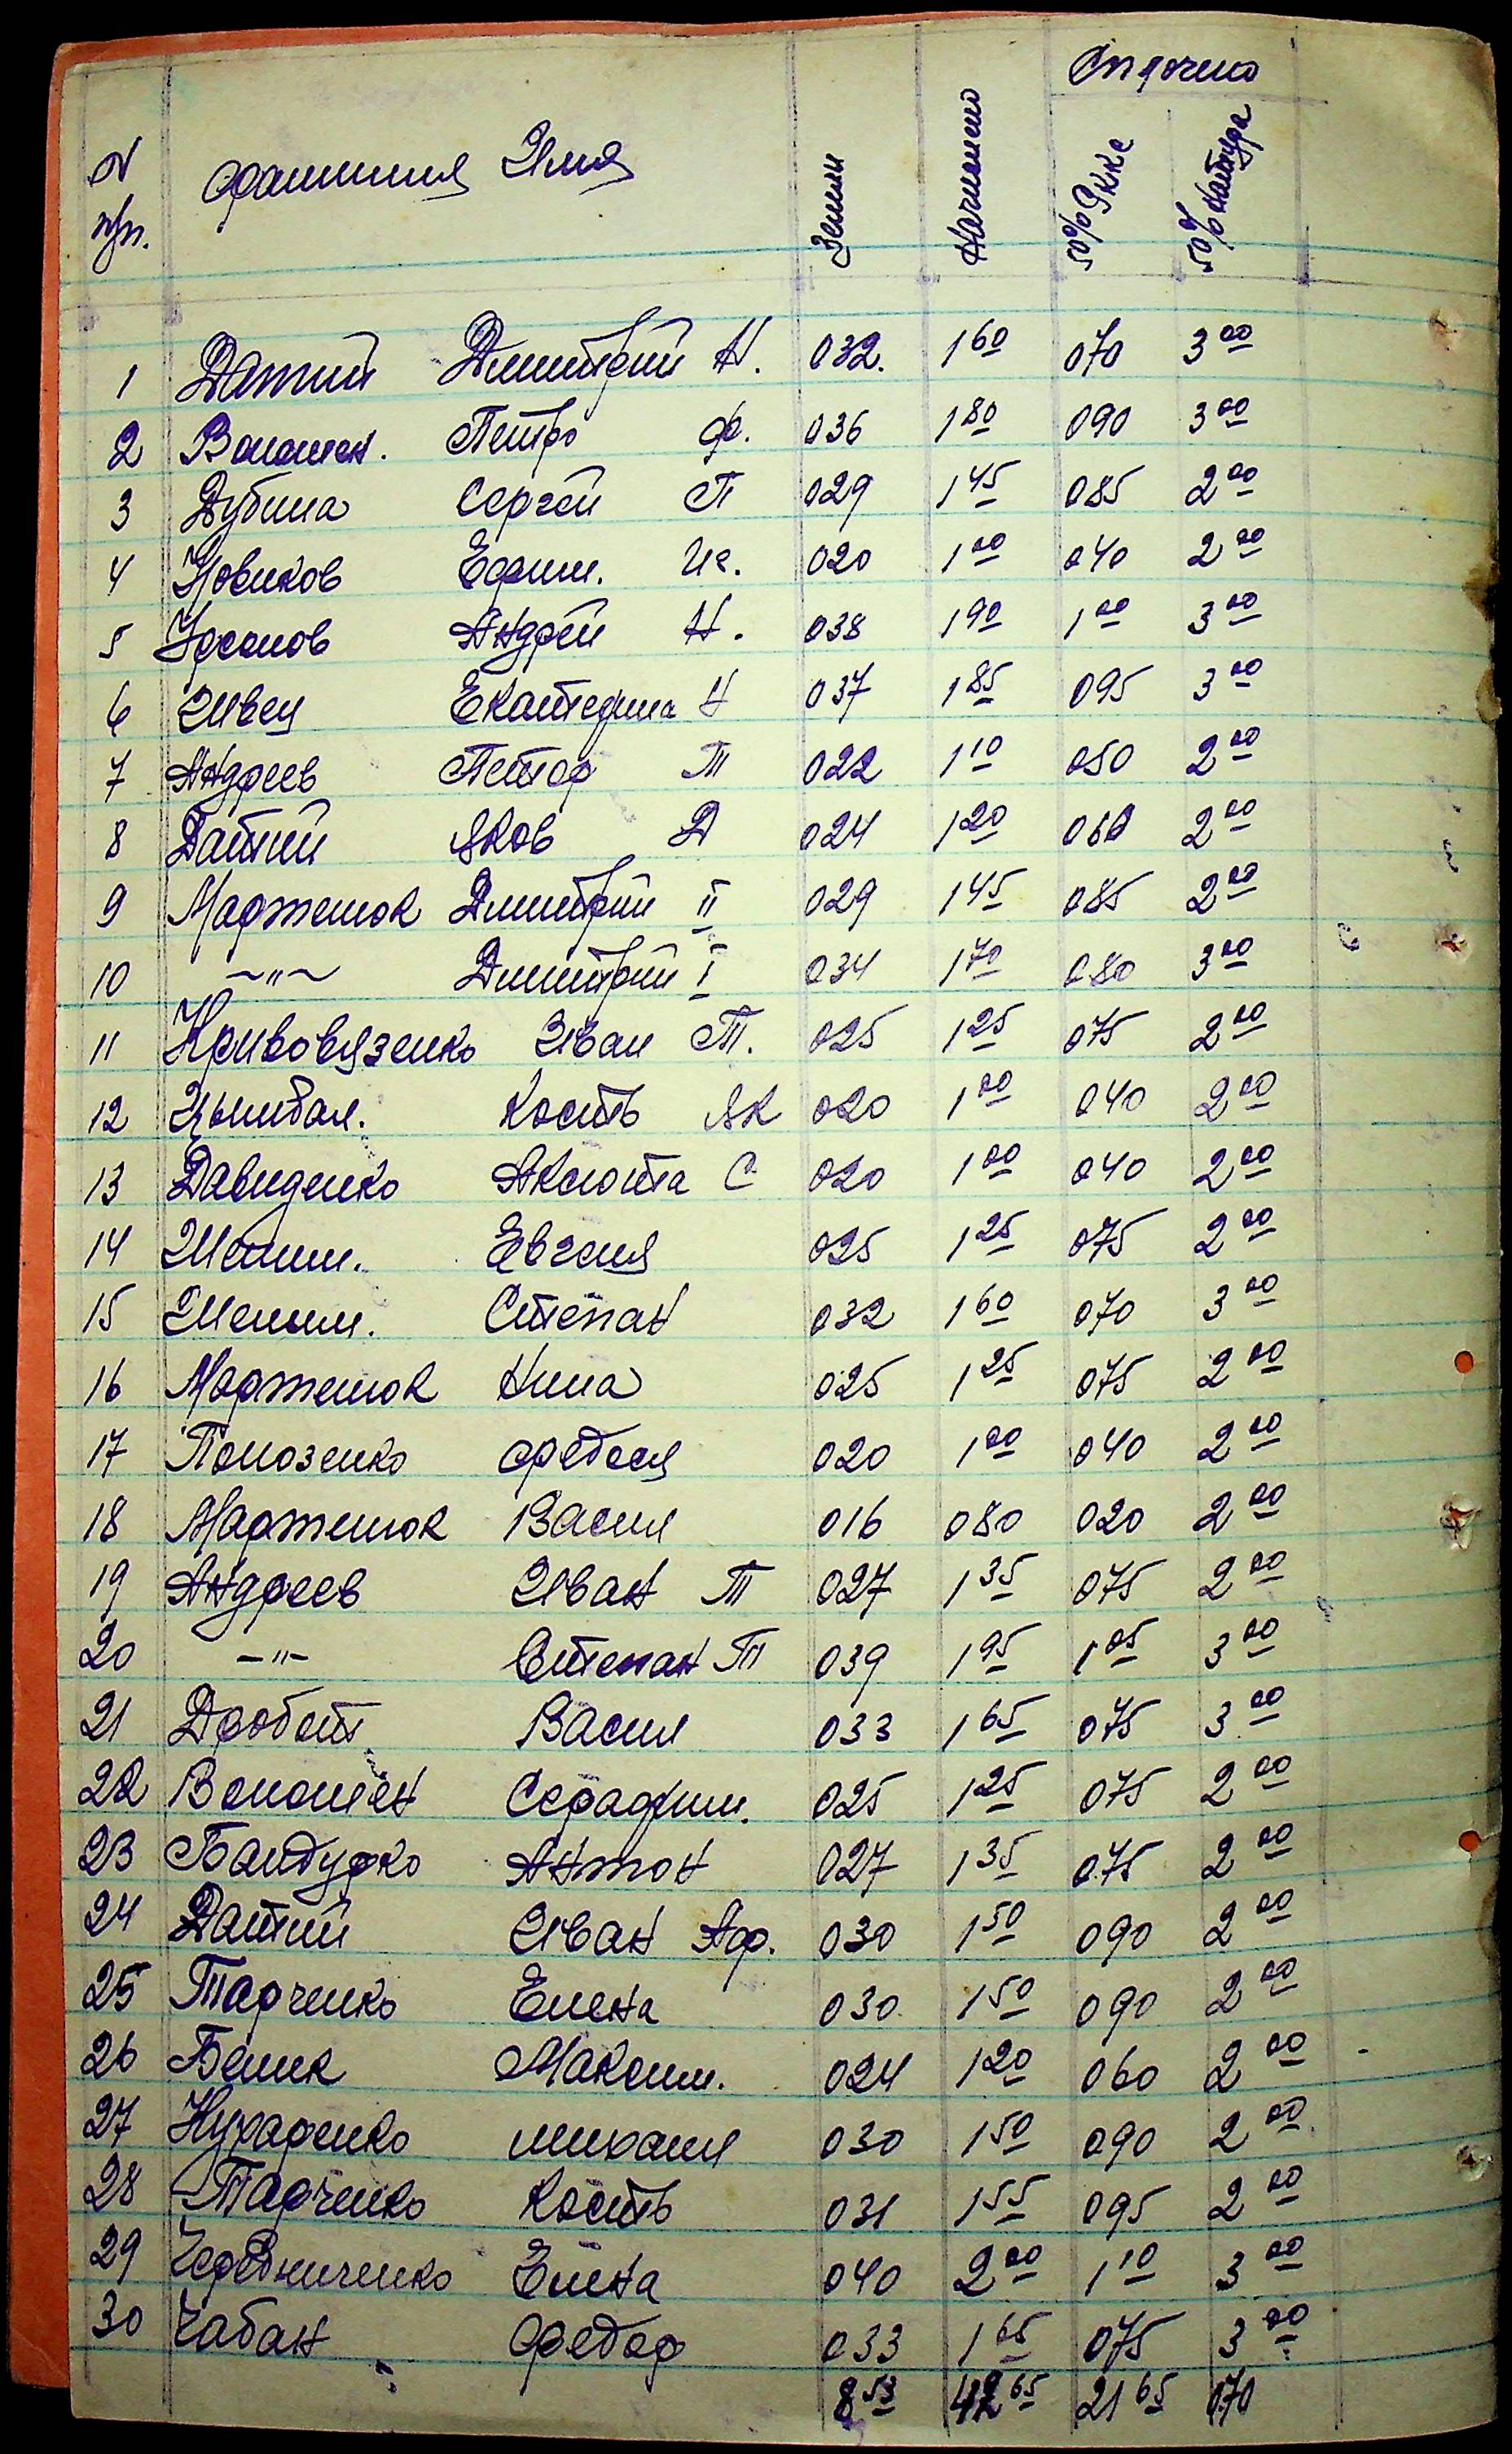 Отдочено
N п/п. Фамилия Имя Земли Начислено 50% Рккс 50% Натура
1 Датий Дмитрий Н. 032. 1 60 070 3 00
2 Волошен. Петро Ф. 036 1 80 090 3 00
3 Дубина Сергей П 029 1 45 085 2 00
4 Новиков Ефим. Иг. 020 1 00 040 2 00
5 Урсалов Андрей Н. 038 1 90 1 00 3 00
6 Швец Екатерина Н 037 1 85 095 3 00
7 Андреев Петор Т 022 1 10 050 2 00
8 Датий Яков Д 024 1 20 060 2 00
9 Мартенюк Дмитрий II 029 1 45 085 2 00
10 ~"~ Дмитрий I 034 1 70 080 3 00
11 Кривовязенко Иван Т. 025 1 25 075 2 00
12 Цымбал. Кость Як 020 1 00 040 2 00
13 Давиденко Аксюта С 020 1 00 040 2 00
14 Шелим. Евгения 025 1 25 075 2 00
15 Шелым. Степан 032 1 60 070 3 00
16 Мартенюк Нина 025 1 25 075 2 00
17 Полозенко Федося 020 1 00 040 2 00
18 Мартенюк Васил 016 080 020 2 00
19 Андреев Иван Т 027 1 35 075 2 00
20 -"- Степан Т 039 1 95 1 05 3 00
21 Дробот Васил 033 1 65 075 3 00
22 Волошен Серафим. 025 1 25 075 2 00
23 Бандурко Антон 027 1 35 075 2 00
24 Датий Иван Аф. 030 1 50 090 2 00
25 Тарченко Елена 030 1 50 090 2 00
26 Белик Максим. 024 1 20 060 2 00
27 Кухаренко михаил 030 1 50 090 2 00
28 Тарченко Кость 031 1 55 095 2 00
29 Чередниченко Елена 040 2 00 1 10 3 00
30 Чабан Федор 033 1 65 075 3 00
8 53 42 65 21 65 070